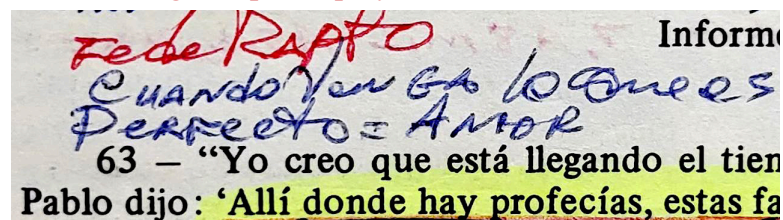 Fe de RAPTO
Informe
CUANDO VENGA lo Que es
PERFECTO = AMOR
63 – “Yo creo que está llegando el tien
Pablo dijo: ‘Allí donde hay profecías, estas fa